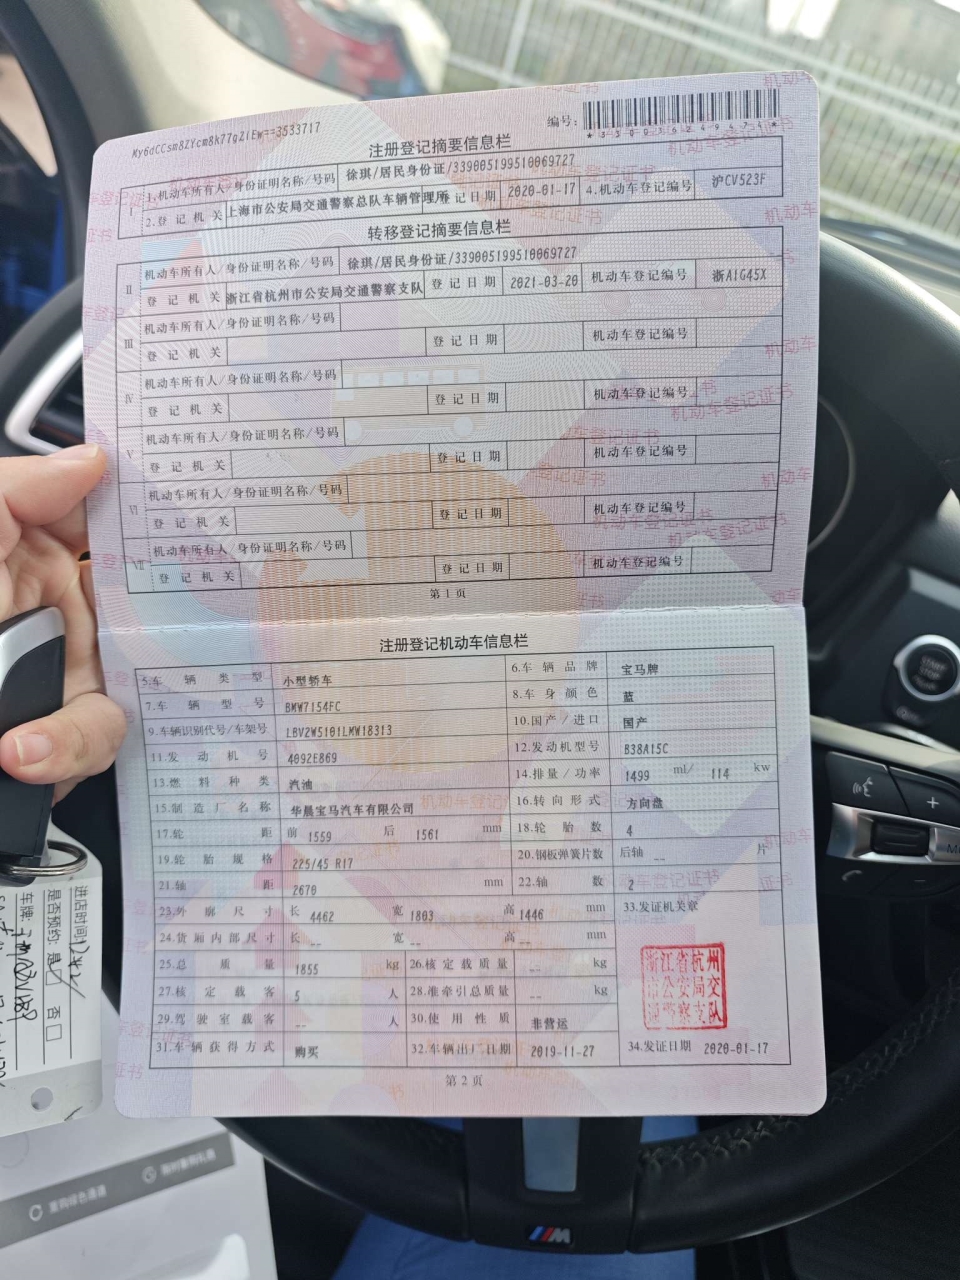 My6dCCsm8ZYcm8k77q2iEw==3533717
编号:
*330036249674*
注册登记摘要信息栏
I 1.机动车所有人/身份证明名称/号码 徐琪/居民身份证/339005199510069727
2.登记机关 上海市公安局交通警察总队车辆管理所 3.登记日期 2020-01-17 4.机动车登记编号 沪CV523F
转移登记摘要信息栏
II 机动车所有人/身份证明名称/号码 徐琪/居民身份证/339005199510069727
登记机关 浙江省杭州市公安局交通警察支队 登记日期 2021-03-20 机动车登记编号 浙A1G45X
III 机动车所有人/身份证明名称/号码
登记机关 登记日期 机动车登记编号
IV 机动车所有人/身份证明名称/号码
登记机关 登记日期 机动车登记编号
V 机动车所有人/身份证明名称/号码
登记机关 登记日期 机动车登记编号
VI 机动车所有人/身份证明名称/号码
登记机关 登记日期 机动车登记编号
VII 机动车所有人/身份证明名称/号码
登记机关 登记日期 机动车登记编号
第1页
注册登记机动车信息栏
5.车辆类型 小型轿车 6.车辆品牌 宝马牌
7.车辆型号 BMW7154FC 8.车身颜色 蓝
9.车辆识别代号/车架号 LBV2W5101LMW18313 10.国产/进口 国产
11.发动机号 4092E869 12.发动机型号 B38A15C
13.燃料种类 汽油 14.排量/功率 1499 ml/ 114 kw
15.制造厂名称 华晨宝马汽车有限公司 16.转向形式 方向盘
17.轮距 前 1559 后 1561 mm 18.轮胎数 4
19.轮胎规格 225/45 R17 20.钢板弹簧片数 后轴 -- 片
21.轴距 2670 mm 22.轴数 2
23.外廓尺寸 长 4462 宽 1803 高 1446 mm 33.发证机关章
24.货厢内部尺寸 长 -- 宽 -- 高 -- mm
25.总质量 1855 kg 26.核定载质量 -- kg
27.核定载客 5 人 28.准牵引总质量 -- kg
29.驾驶室载客 -- 人 30.使用性质 非营运
31.车辆获得方式 购买 32.车辆出厂日期 2019-11-27 34.发证日期 2020-01-17
浙江省杭州
市公安局交
通警察支队
第2页
进店时间
是否预约: 是 否
车牌:
START
STOP